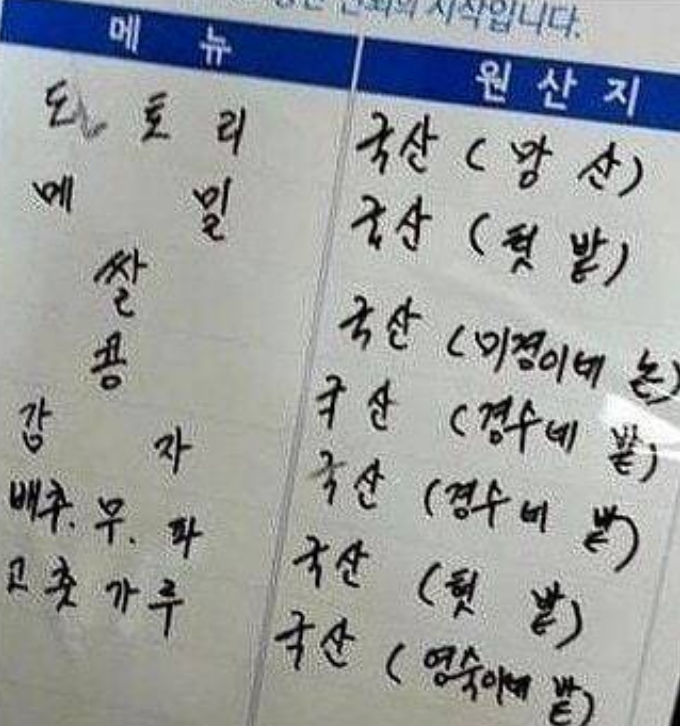 시작입니다.
메 뉴 원 산 지
도 토 리 국산 ( 앞 산 )
메 밀 국산 ( 텃 밭 )
쌀 국산 ( 미경이네 논 )
콩 국 산 ( 경수네 밭 )
감 자 국산 ( 경수네 밭 )
배추. 무. 파 국산 ( 텃 밭 )
고 춧 가 루 국산 ( 영숙이네 밭 )